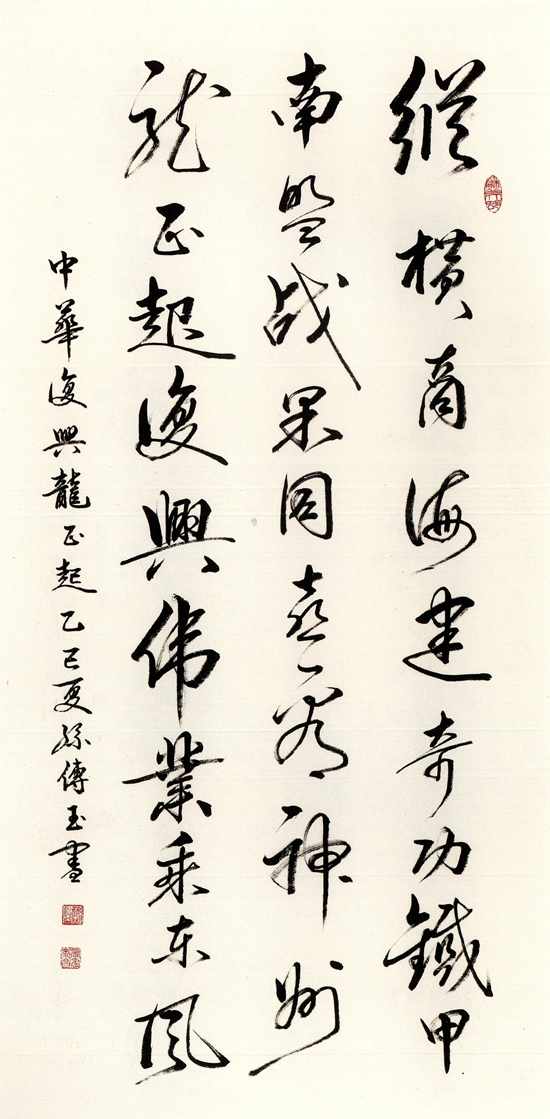 縱橫商海建奇功鐵甲
南盟战果同喜看神州
龙正起復興伟業乘东风
中華復興龍正起乙巳夏孫傳玉書